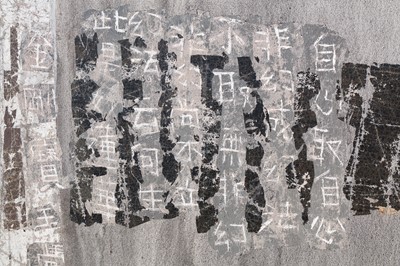 自心取自心
非幻成幻法
不取無非幻
非幻尚不生
幻法云何立
此是名蓮華
金剛寶王